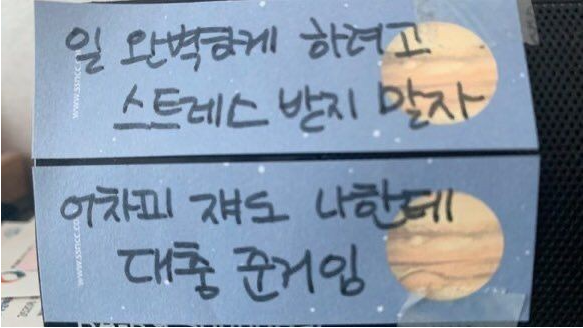 일 완벽하게 하려고
스트레스 받지 말자
어차피 쟤도 나한테
대충 준거임
www.ssncc.co
www.ssncc.co